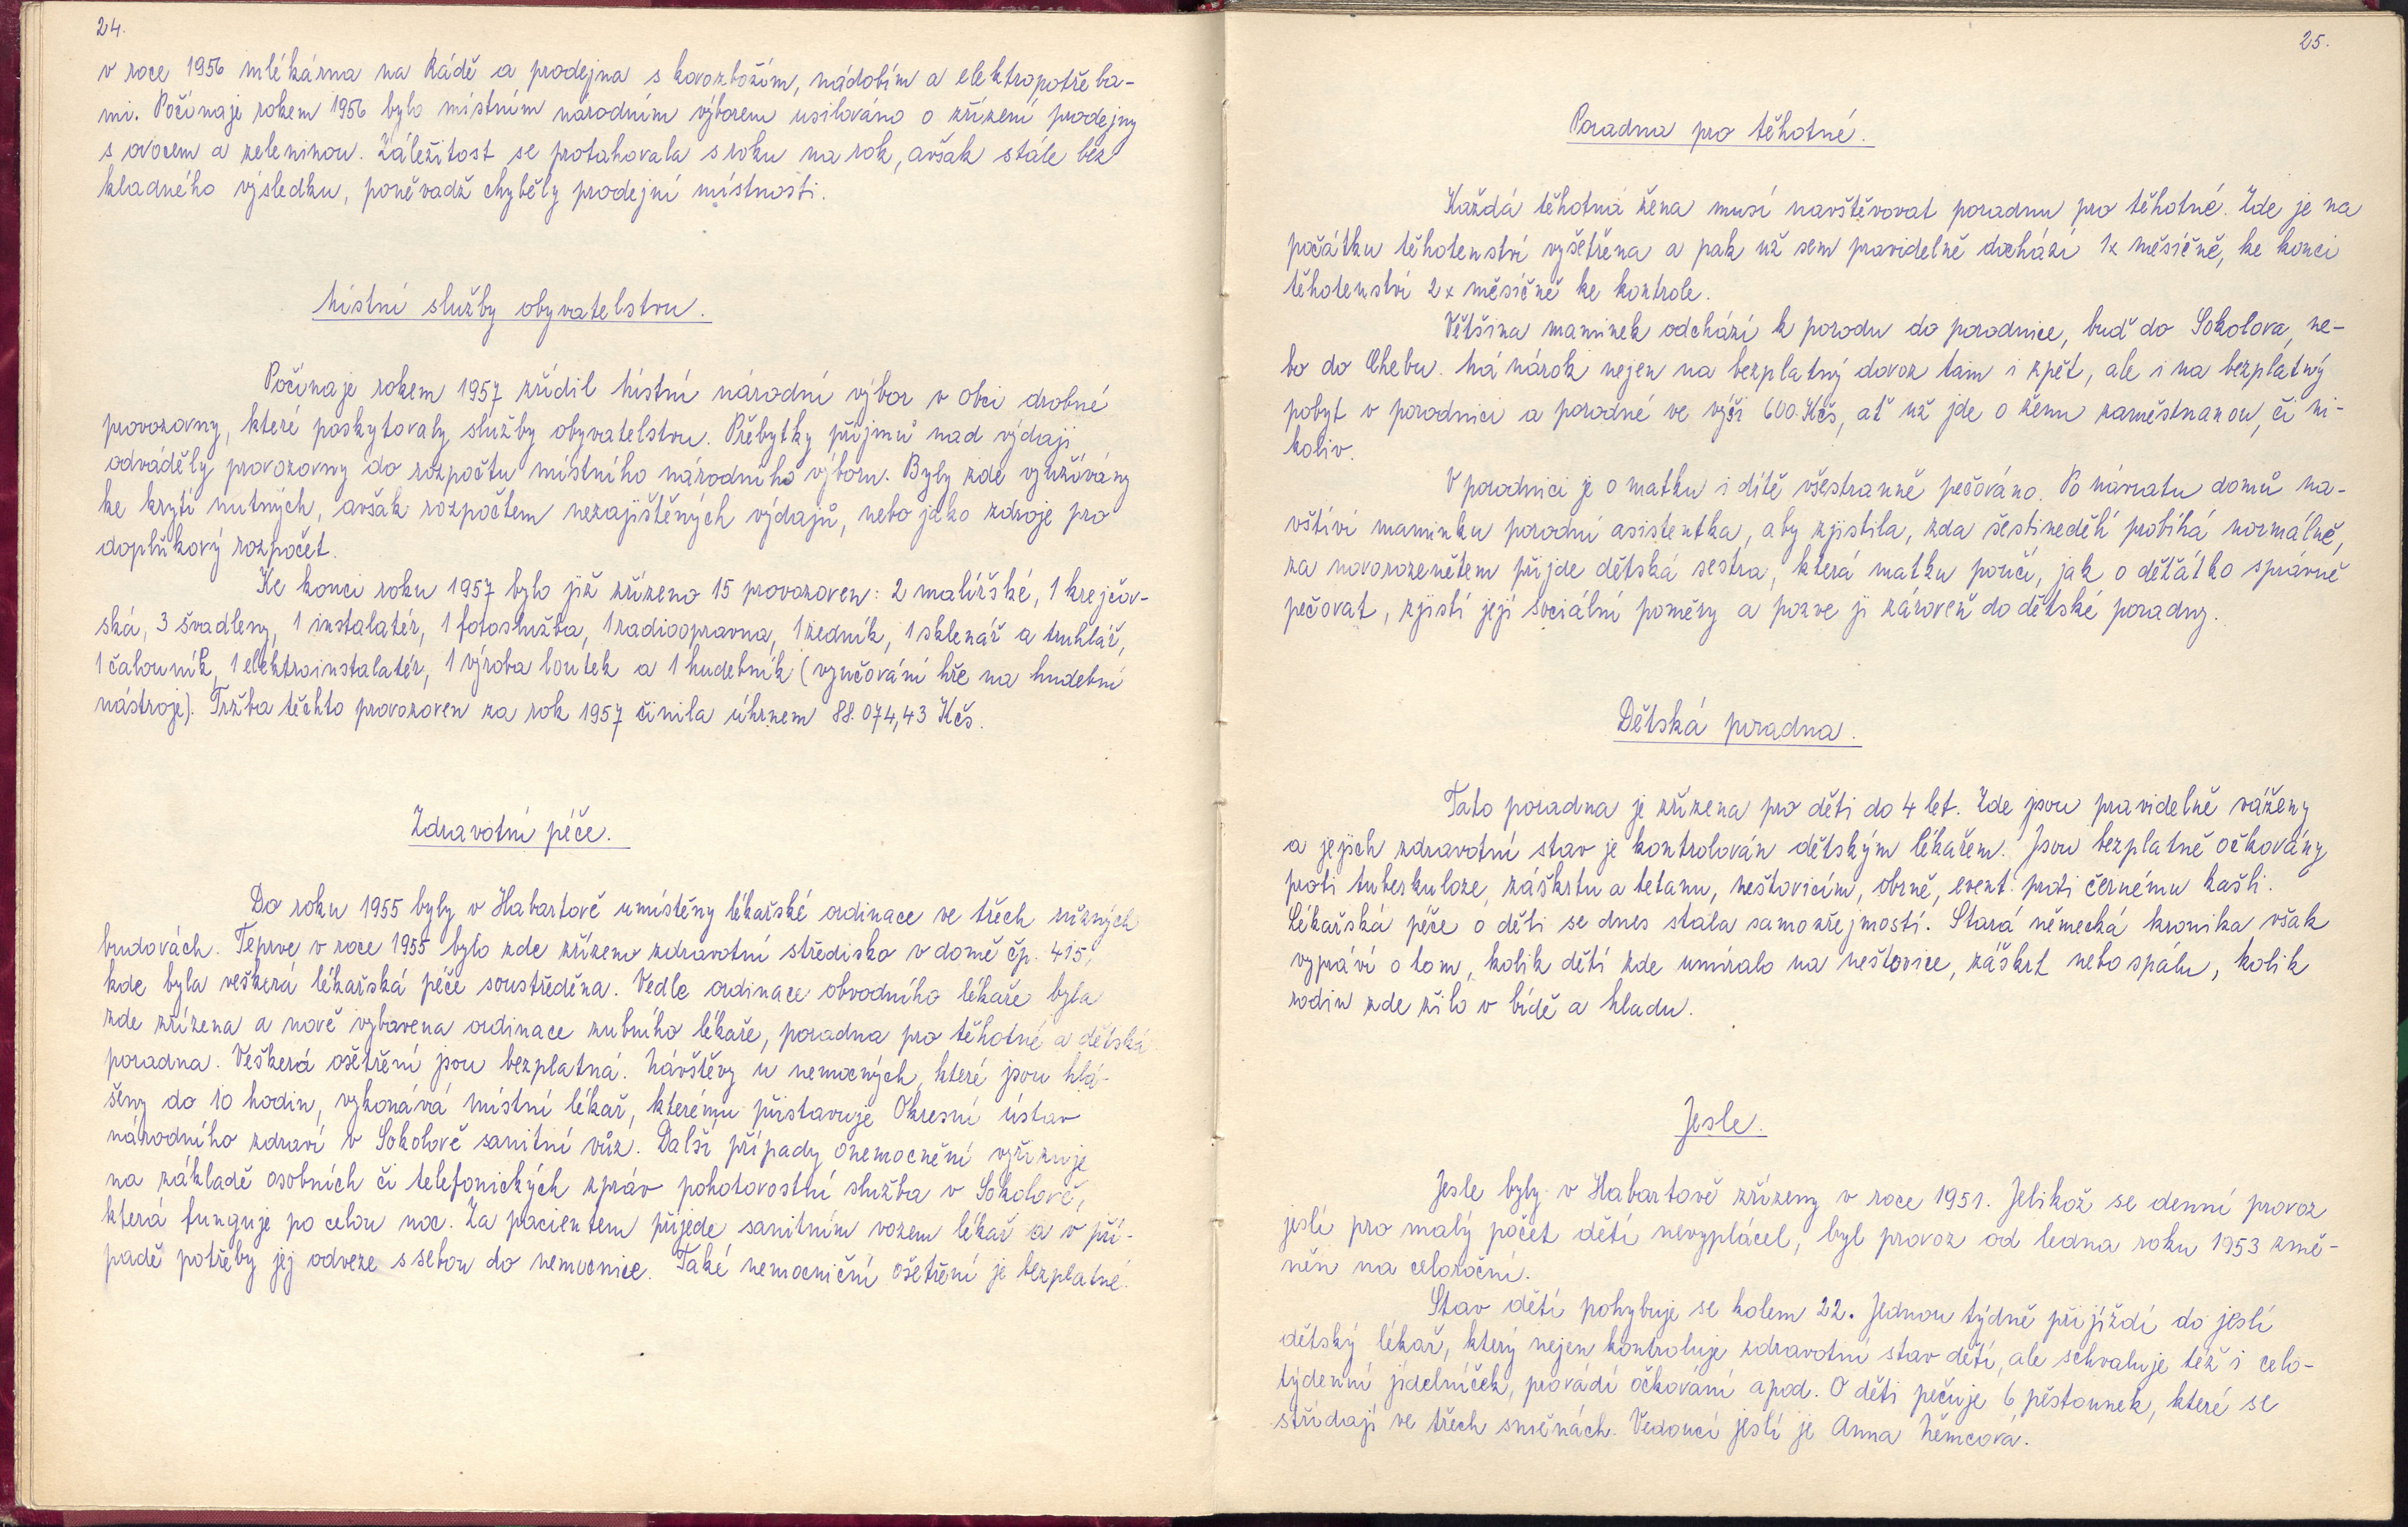 24.
v roce 1956 mlékárna na Kádě a prodejna s kovozbožím, nádobím a elektropotřeba-
mi. Počínaje rokem 1956 bylo místním národním výborem usilováno o zřízení prodejny
s ovocem a zeleninou. Záležitost se protahovala s roku na rok, avšak stále bez
kladného výsledku, poněvadž chyběly prodejní místnosti.
Místní služby obyvatelstvu.
Počínaje rokem 1957 zřídil Místní národní výbor v obci drobné
provozovny, které poskytovaly služby obyvatelstvu. Přebytky příjmů nad výdaji
odváděly provozovny do rozpočtu místního národního výboru. Byly zde využívány
ke krytí nutných, avšak rozpočtem nezajištěných výdajů, nebo jako zdroje pro
doplňkový rozpočet.
Ke konci roku 1957 bylo již zřízeno 15 provozoven: 2 malířské, 1 krejčov-
ská, 3 švadleny, 1 instalatér, 1 fotoslužba, 1 radioopravna, 1 zedník, 1 sklenář a truhlář,
1 čalouník, 1 elektroinstalatér, 1 výroba loutek a 1 hudebník (vyučování hře na hudební
nástroje). Tržba těchto provozoven za rok 1957 činila úhrnem 88.074,43 Kčs.
Zdravotní péče.
Do roku 1955 byly v Habartově umístěny lékařské ordinace ve třech různých
budovách. Teprve v roce 1955 bylo zde zřízeno zdravotní středisko v domě čp. 415,
kde byla veškerá lékařská péče soustředěna. Vedle ordinace obvodního lékaře byla
zde zřízena a nově vybavena ordinace zubního lékaře, poradna pro těhotné a dětská
poradna. Veškerá ošetření jsou bezplatná. Návštěvy u nemocných, které jsou hlá-
šeny do 10 hodin, vykonává místní lékař, kterému přistavuje Okresní ústav
národního zdraví v Sokolově sanitní vůz. Další případy onemocnění vyřizuje
na základě osobních či telefonických zpráv pohotovostní služba v Sokolově,
která funguje po celou noc. Za pacientem přijede sanitním vozem lékař a v pří-
padě potřeby jej odveze s sebou do nemocnice. Také nemocniční ošetření je bezplatné.
25.
Poradna pro těhotné.
Každá těhotná žena musí navštěvovat poradnu pro těhotné. Zde je na
počátku těhotenství vyšetřena a pak už sem pravidelně dochází 1x měsíčně, ke konci
těhotenství 2x měsíčně ke kontrole.
Většina maminek odchází k porodu do porodnice, buď do Sokolova, ne-
bo do Chebu. Má nárok nejen na bezplatný dovoz tam i zpět, ale i na bezplatný
pobyt v porodnici a porodné ve výši 600 Kčs, ať už jde o ženu zaměstnanou, či ni-
koliv.
V porodnici je o matku i dítě všestranně pečováno. Po návratu domů na-
vštíví maminku porodní asistentka, aby zjistila, zda šestinedělí probíhá normálně,
za novorozenětem přijde dětská sestra, která matku poučí, jak o děťátko správně
pečovat, zjistí její sociální poměry a pozve ji zároveň do dětské poradny.
Dětská poradna.
Tato poradna je zřízena pro děti do 4 let. Zde jsou pravidelně váženy
a jejich zdravotní stav je kontrolován dětským lékařem. Jsou bezplatně očkovány
proti tuberkuloze, záškrtu a tetanu, neštovicím, obrně, event. proti černému kašli.
Lékařská péče o děti se dnes stala samozřejmostí. Stará německá kronika však
vypráví o tom, kolik dětí zde umíralo na neštovice, záškrt nebo spálu, kolik
rodin zde žilo v bídě a hladu.
Jesle.
Jesle byly v Habartově zřízeny v roce 1951. Jelikož se denní provoz
jeslí pro malý počet dětí nevyplácel, byl provoz od ledna roku 1953 změ-
něn na celoroční.
Stav dětí pohybuje se kolem 22. Jednou týdně přijíždí do jeslí
dětský lékař, který nejen kontroluje zdravotní stav dětí, ale schvaluje též i celo-
týdenní jídelníček, provádí očkování apod. O děti pečuje 6 pěstounek, které se
střídají ve třech směnách. Vedoucí jeslí je Anna Němcová.